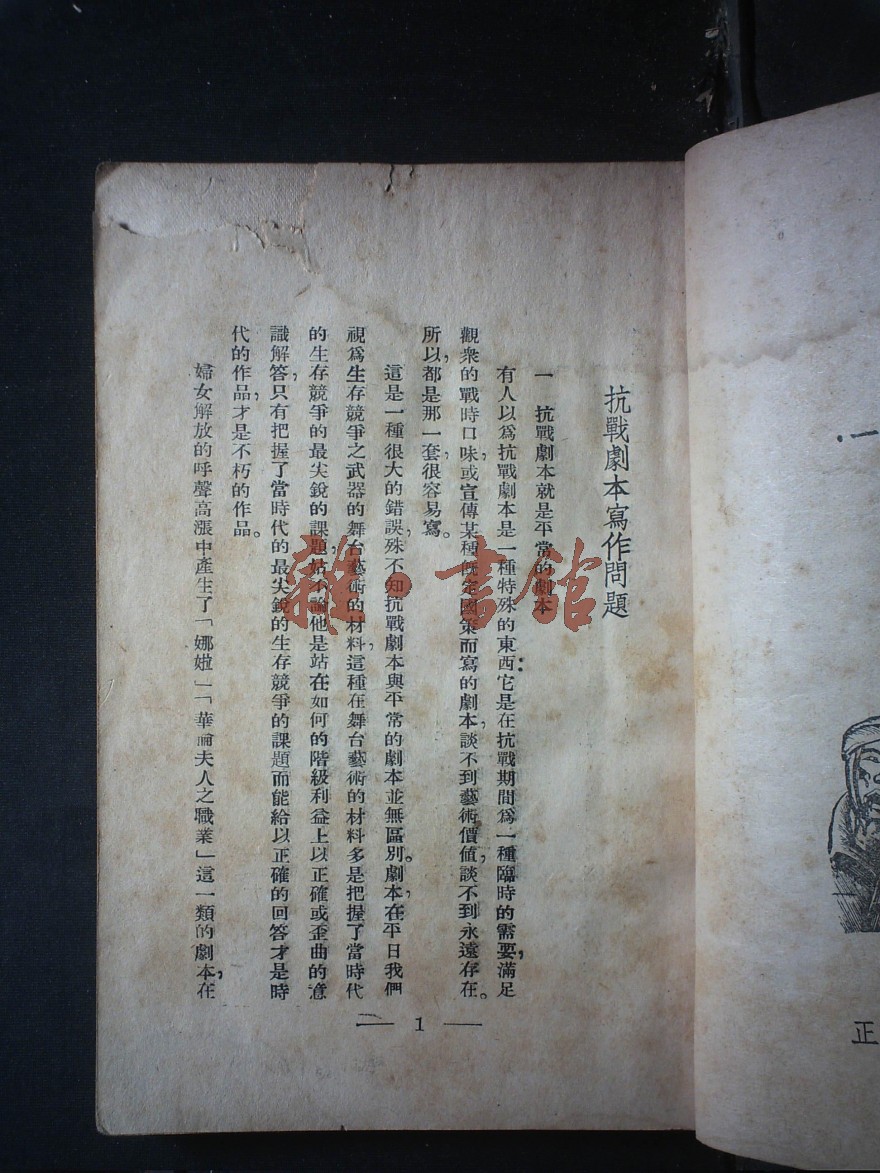 抗戰劇本寫作問題
一　抗戰劇本就是平常的劇本
有人以爲抗戰劇本是一種特殊的東西：它是在抗戰期間爲一種臨時的需要，滿足
觀衆的戰時口味，或宣傳某種既定國策而寫的劇本，談不到藝術價值，談不到永遠存在。
所以，都是那一套，很容易寫。
這是一種很大的錯誤，殊不知抗戰劇本與平常的劇本並無區別。劇本，在平日我們
視爲生存競爭之武器的舞台藝術的材料，這種在舞台藝術的材料多是把握了當時代
的生存競爭的最尖銳的課題，姑不論他是站在如何的階級利益上以正確或歪曲的意
識解答，只有把握了當時代的最尖銳的生存競爭的課題而能給以正確的回答才是時
代的作品，才是不朽的作品。
婦女解放的呼聲高漲中產生了「娜啦」「華倫夫人之職業」這一類的劇本，在
— 1 —
一．
正
雜·書館